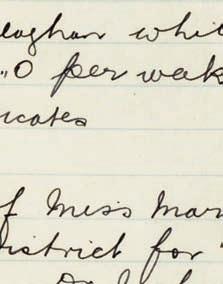 whi
"0 per week
icates
f Miss Mar
istrict for "